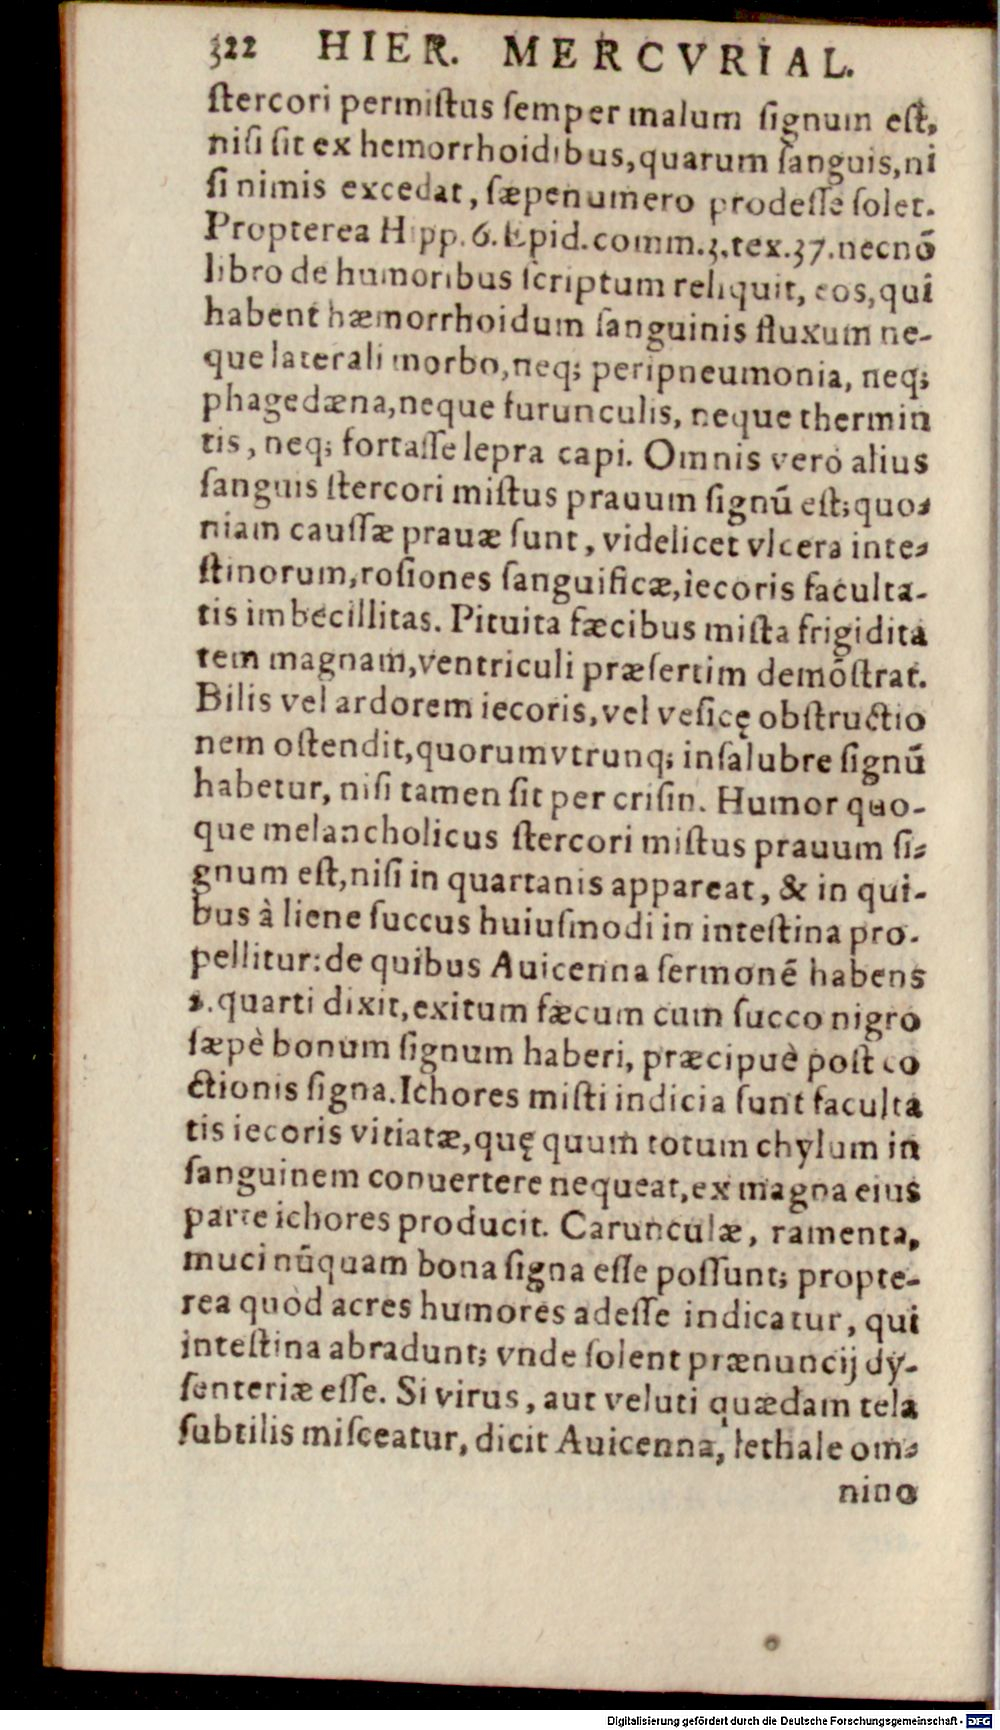 322 HIER. MERCVRIAL.
ſtercori permiſtus ſemper malum ſignum eſt,
niſi ſit ex hemorrhoidibus,quarum ſanguis,ni
ſi nimis excedat, ſæpenumero prodeſſe ſolet.
Propterea Hipp. 6. Epid. comm.3. tex.37. necnō
libro de humoribus ſcriptum reliquit, eos,qui
habent hæmorrhoidum ſanguinis fluxum ne-
que laterali morbo,neq; peripneumonia, neq;
phagedæna,neque furunculis, neque thermin
tis, neq; fortaſſe lepra capi. Omnis vero alius
ſanguis ſtercori miſtus prauum ſignū eſt;quo-
niam cauſſæ prauæ ſunt, videlicet vlcera inte-
ſtinorum,roſiones ſanguificæ,iecoris faculta-
tis imbecillitas. Pituita fæcibus miſta frigidita
tem magnam,ventriculi præſertim demōſtrat.
Bilis vel ardorem iecoris,vel veſicę obſtructio
nem oſtendit,quorumvtrunq; inſalubre ſignū
habetur, niſi tamen ſit per criſin. Humor quo-
que melancholicus ſtercori miſtus prauum ſi-
gnum eſt,niſi in quartanis appareat, & in qui-
bus à liene ſuccus huiuſmodi in inteſtina pro-
pellitur:de quibus Auicenna ſermonē habens
1. quarti dixit,exitum fæcum cum ſucco nigro
ſæpè bonum ſignum haberi, præcipuè poſt co
ctionis ſigna.Ichores miſti indicia ſunt faculta
tis iecoris vitiatæ,quę quum totum chylum in
ſanguinem conuertere nequeat,ex magna eius
parte ichores producit. Carunculæ, ramenta,
muci nūquam bona ſigna eſſe poſſunt; propte-
rea quod acres humores adeſſe indicatur, qui
inteſtina abradunt; vnde ſolent prænuncij dy-
ſenteriæ eſſe. Si virus, aut veluti quædam tela
ſubtilis miſceatur, dicit Auicenna, lethale om-
nino
Digitalisierung gefördert durch die Deutsche Forschungsgemeinschaft - DFG